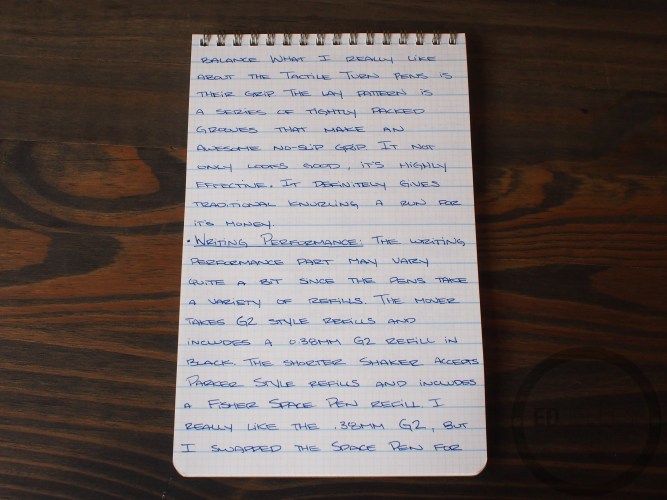 BALANCE WHAT I REALLY LIKE
ABOUT THE TACTILE TURN PENS IS
THEIR GRIP. THE LAY PATTERN IS
A SERIES OF TIGHTLY PACKED
GROOVES THAT MAKE AN
AWESOME NO-SLIP GRIP. IT NOT
ONLY LOOKS GOOD, IT'S HIGHLY
EFFECTIVE. IT DEFINITELY GIVES
TRADITIONAL KNURLING A RUN FOR
IT'S MONEY.
• WRITING PERFORMANCE: THE WRITING
PERFORMANCE PART MAY VARY
QUITE A BIT SINCE THE PENS TAKE
A VARIETY OF REFILLS. THE MOVER
TAKES G2 STYLE REFILLS AND
INCLUDES A 0.38MM G2 REFILL IN
BLACK. THE SHORTER SHAKER ACCEPTS
PARKER STYLE REFILLS AND INCLUDES
A FISHER SPACE PEN REFILL. I
REALLY LIKE THE .38MM G2, BUT
I SWAPPED THE SPACE PEN FOR